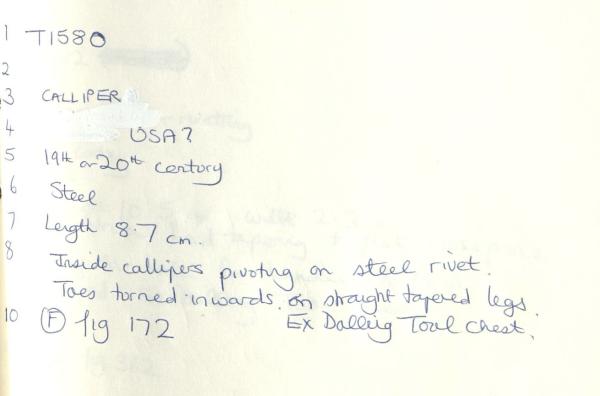 1 T1580
2
3 CALLIPER
4 USA?
5 19th or 20th century
6 Steel
7 Length 8.7 cm.
8 Inside callipers pivoting on steel rivet.
Toes turned inwards. on straight tapered legs.
10 (F) fig 172 Ex Dalling Tool chest.